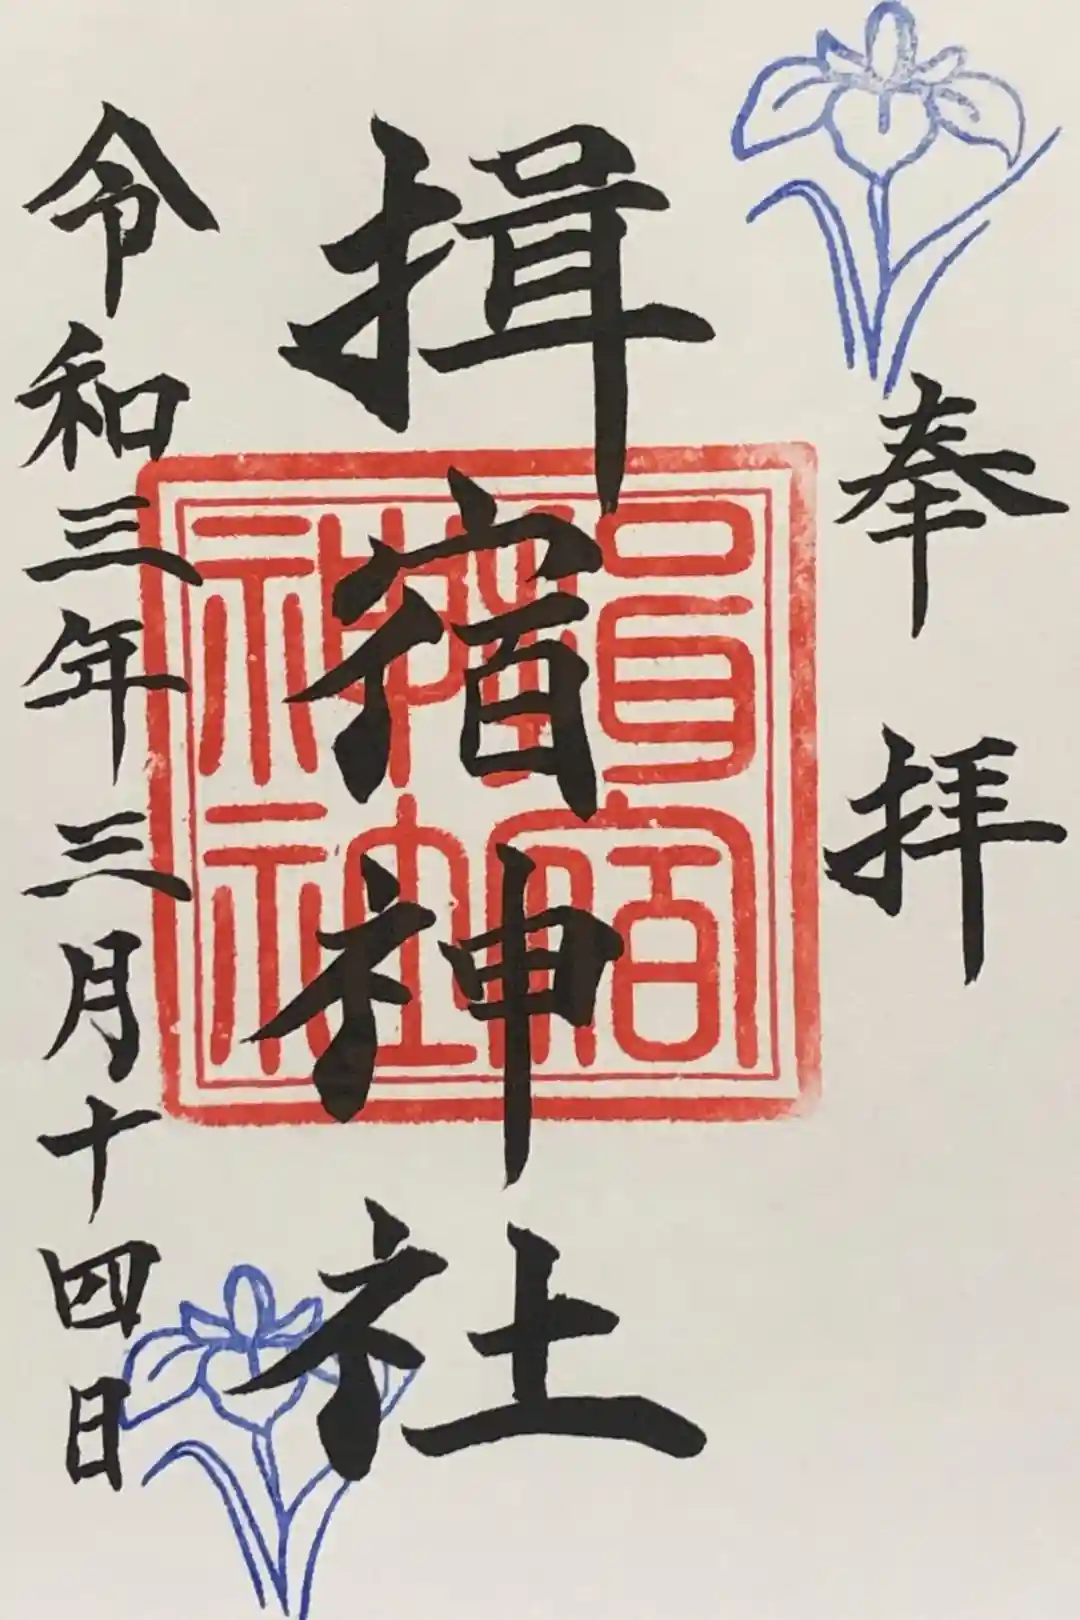 奉拝
揖宿神社
令和三年三月十四日
揖宿神社